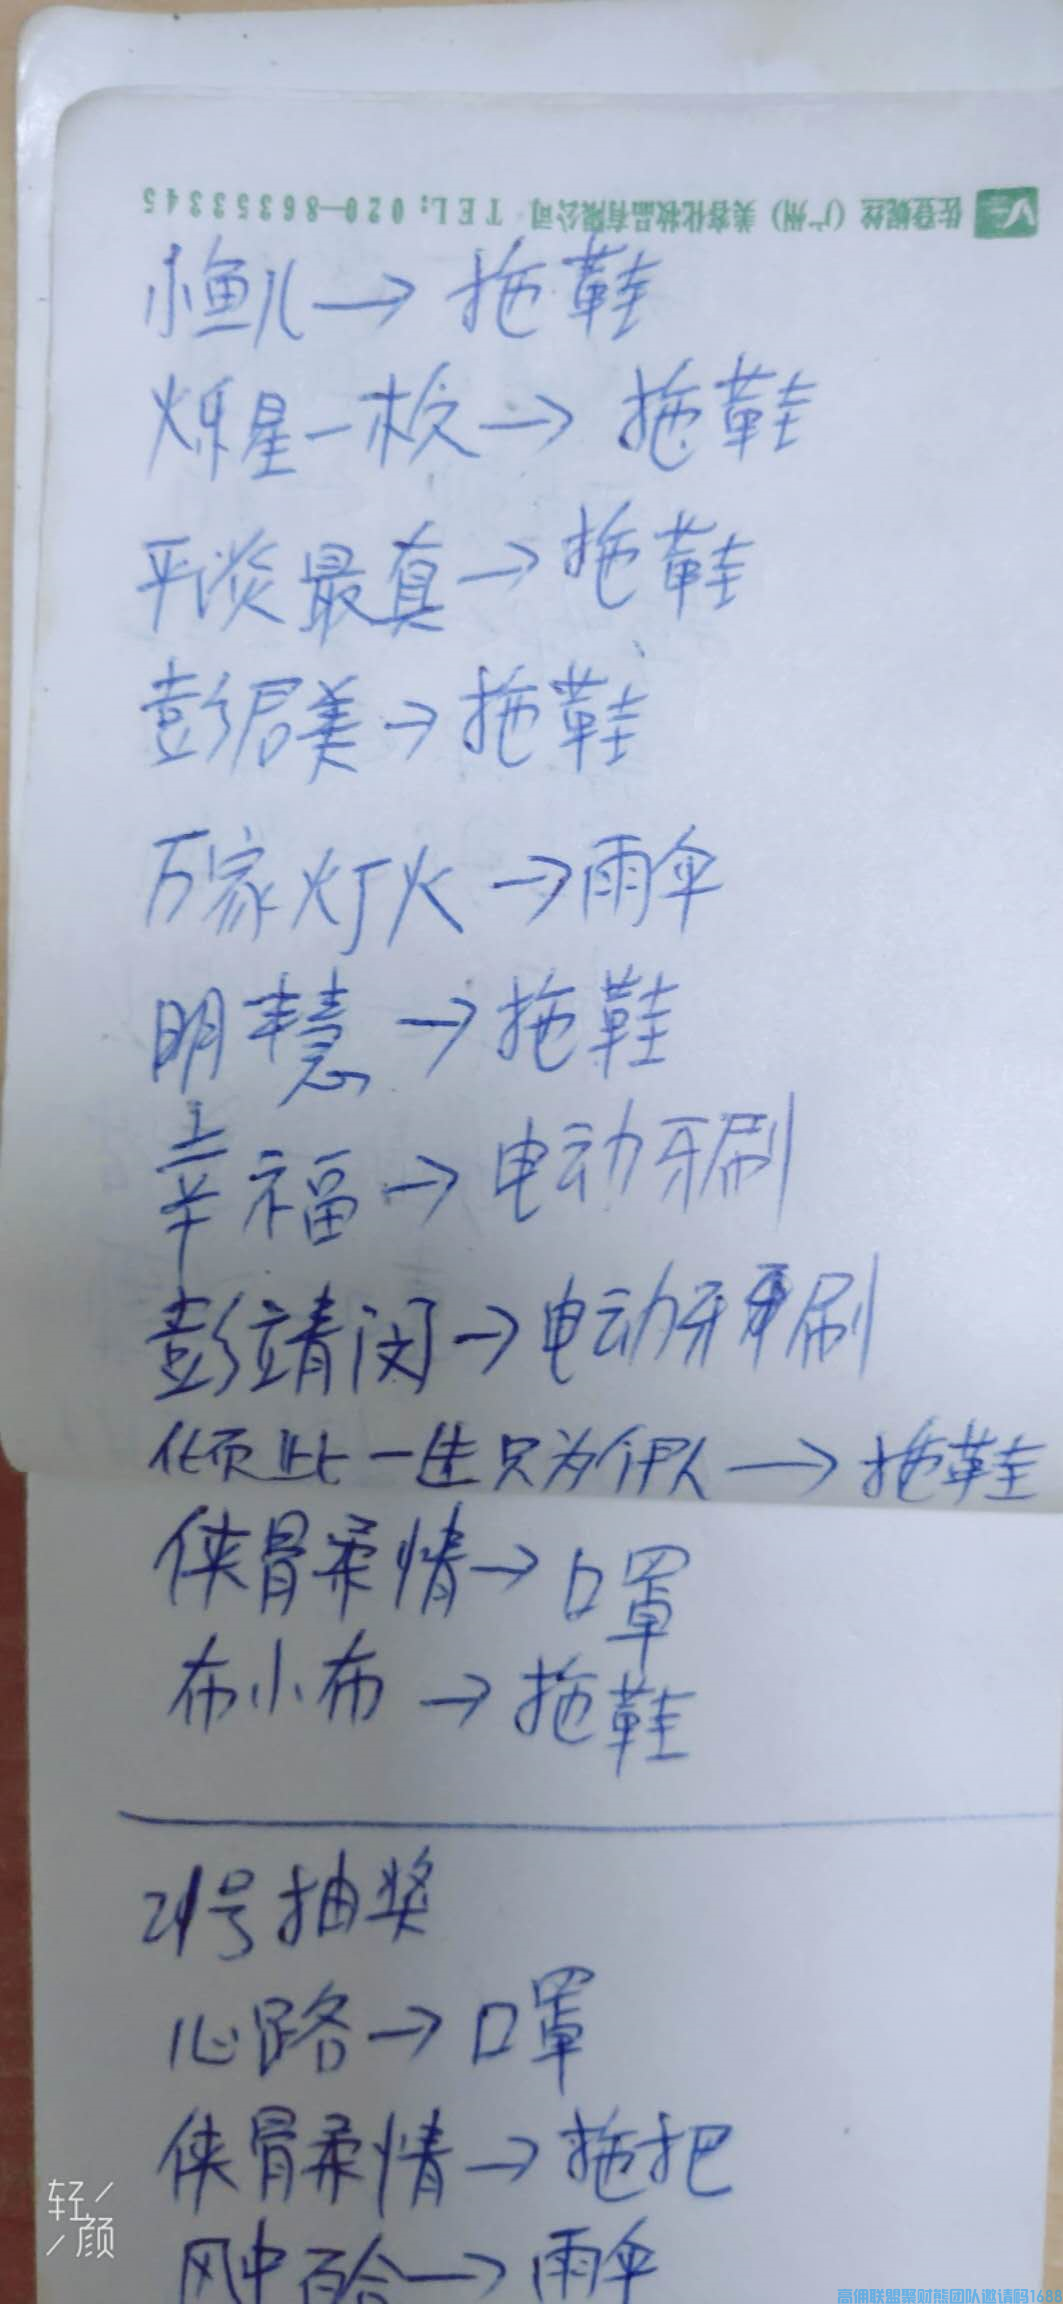 佐登妮丝（广州）美容化妆品有限公司 TEL:020-86355345
小鱼儿→拖鞋
烁星一枚→拖鞋
平淡最真→拖鞋
彭君美→拖鞋
万家灯火→雨伞
明慧→拖鞋
幸福→电动牙刷
彭靖闵→电动牙刷
倾此一生只为伊人→拖鞋
侠骨柔情→口罩
布小布→拖鞋
21号抽奖
心路→口罩
侠骨柔情→拖把
风中百合→雨伞
轻颜
高佣联盟聚财熊团队邀请码1688